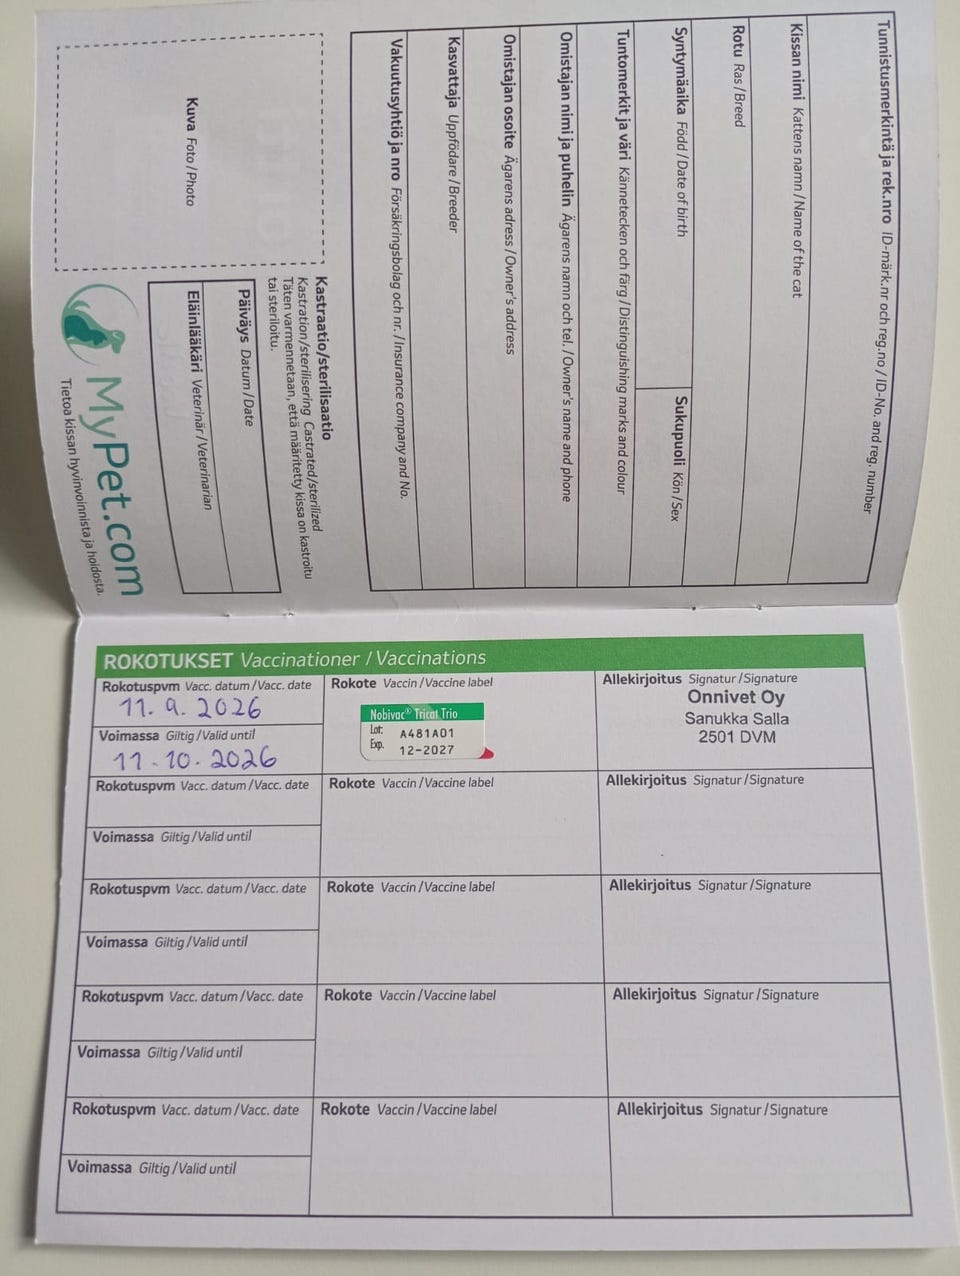 Tunnistusmerkintä ja rek.nro ID-märk.nr och reg.no / ID-No. and reg. number
Kissan nimi Kattens namn / Name of the cat
Rotu Ras / Breed
Syntymäaika Född / Date of birth
Sukupuoli Kön / Sex
Tuntomerkit ja väri Kännetecken och färg / Distinguishing marks and colour
Omistajan nimi ja puhelin Ägarens namn och tel. / Owner's name and phone
Omistajan osoite Ägarens adress / Owner's address
Kasvattaja Uppfödare / Breeder
Vakuutusyhtiö ja nro Försäkringsbolag och nr. / Insurance company and No.
Kuva Foto / Photo
Kastraatio/sterilisaatio
Kastration/sterilisering Castrated/sterilized
Täten varmennetaan, että määritetty kissa on kastroitu
tai steriloitu.
Päiväys Datum / Date
Eläinlääkäri Veterinär / Veterinarian
MyPet.com
Tietoa kissan hyvinvoinnista ja hoidosta.
ROKOTUKSET Vaccinationer / Vaccinations
Rokotuspvm Vacc. datum / Vacc. date
11. 9. 2026
Voimassa Giltig / Valid until
11.10.2026
Rokote Vaccin / Vaccine label
Nobivac® Tricat Trio
Lot: A481A01
Exp. 12-2027
Allekirjoitus Signatur / Signature
Onnivet Oy
Sanukka Salla
2501 DVM
Rokotuspvm Vacc. datum / Vacc. date
Voimassa Giltig / Valid until
Rokote Vaccin / Vaccine label
Allekirjoitus Signatur / Signature
Rokotuspvm Vacc. datum / Vacc. date
Voimassa Giltig / Valid until
Rokote Vaccin / Vaccine label
Allekirjoitus Signatur / Signature
Rokotuspvm Vacc. datum / Vacc. date
Voimassa Giltig / Valid until
Rokote Vaccin / Vaccine label
Allekirjoitus Signatur / Signature
Rokotuspvm Vacc. datum / Vacc. date
Voimassa Giltig / Valid until
Rokote Vaccin / Vaccine label
Allekirjoitus Signatur / Signature